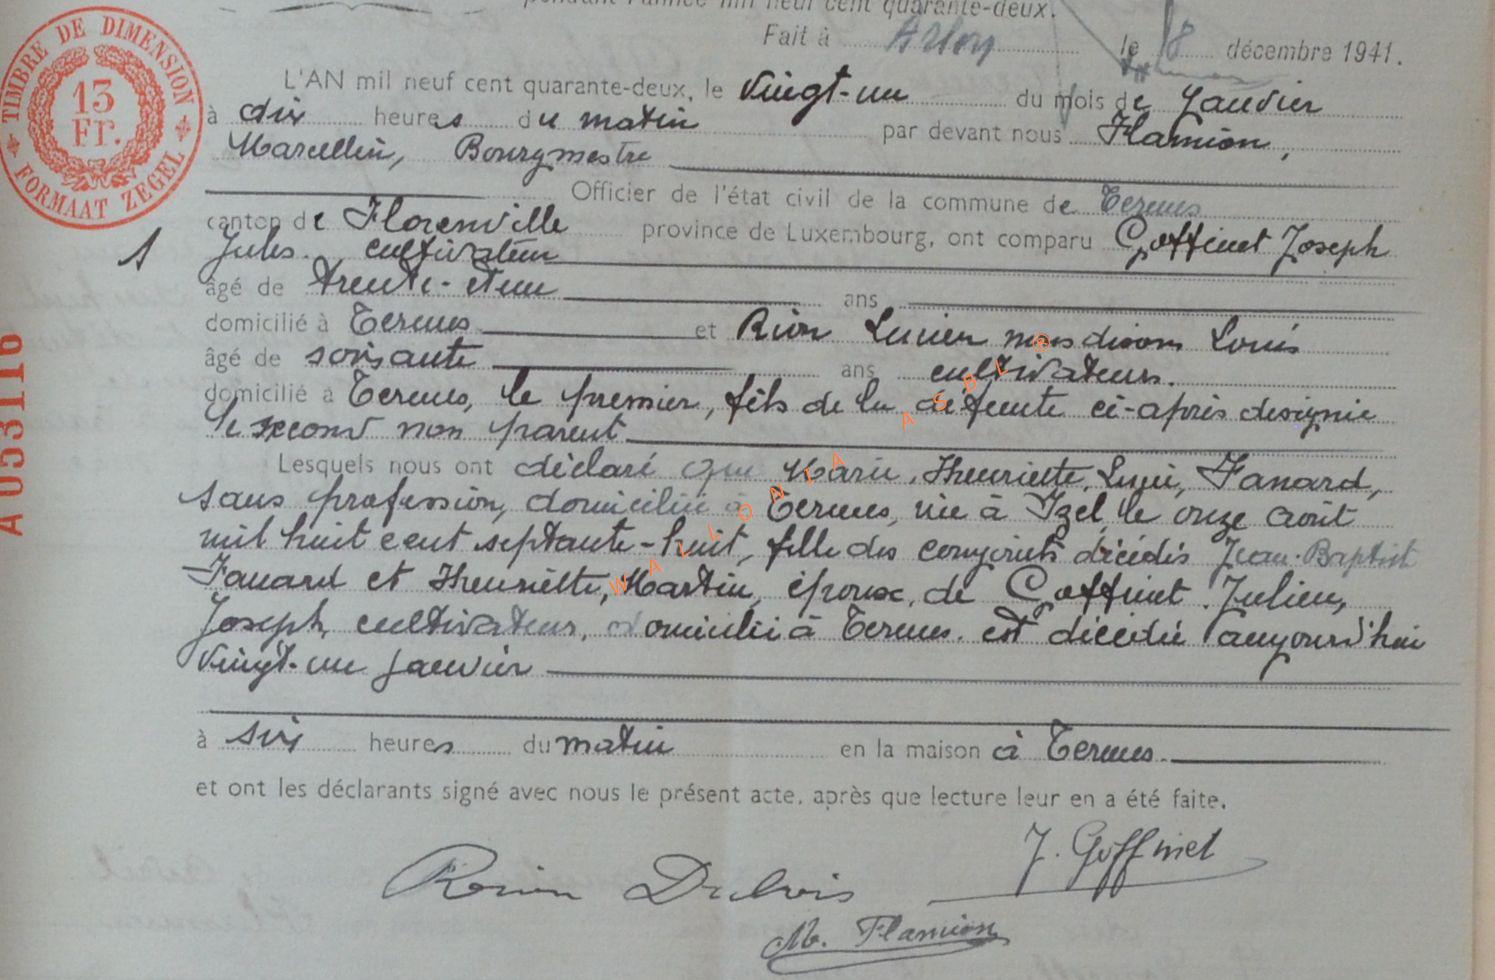 pendant l'année mil neuf cent quarante-deux.
Fait à Arlon le 18 décembre 1941.
TIMBRE DE DIMENSION
13
Fr.
FORMAAT ZEGEL
L'AN mil neuf cent quarante-deux, le vingt-un du mois de Janvier
à dix heures du matin par devant nous Flamion,
Marcellin, Bourgmestre
Officier de l'état civil de la commune de Termes
canton de Florenville province de Luxembourg, ont comparu Goffinet Joseph
1 Jules cultivateur
âgé de trente-et un ans
domicilié à Termes et Rion Lucien nous disons Louis
âgé de soixante ans cultivateurs.
domicilié à Termes, le premier, fils de la défunte ci-après désignée
le second non parent
Lesquels nous ont déclaré que Marie, Henriette, Lucie, Fanard,
sans profession, domiciliée à Termes, née à Izel le onze août
mil huit cent septante-huit, fille des conjoints décédés Jean-Baptist
Fanard et Henriette, Martin, épouse, de Goffinet Julien,
Joseph, cultivateur, domicilié à Termes. est décédée aujourd'hui
vingt-un janvier
à six heures du matin en la maison à Termes.
et ont les déclarants signé avec nous le présent acte, après que lecture leur en a été faite.
J. Goffinet
M. Flamion
A 053116
WALLONIA ASBL B